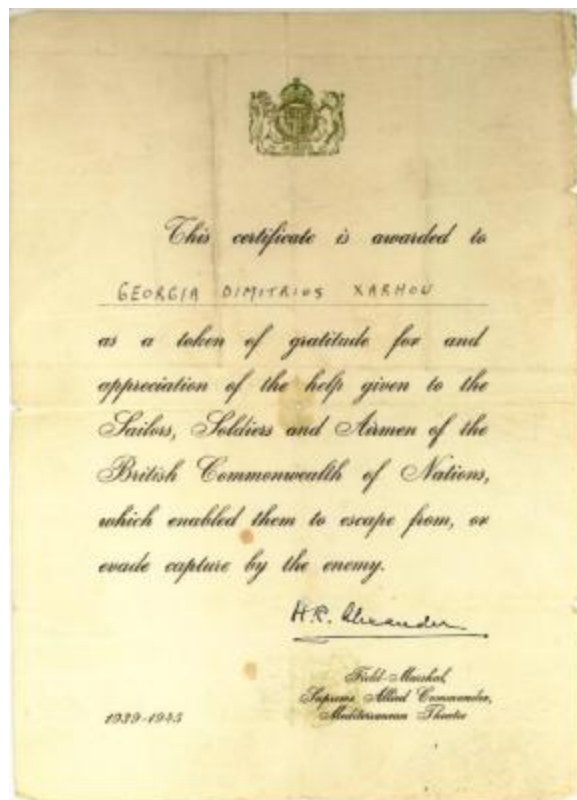 This certificate is awarded to
GEORGIA DIMITRIUS XARHOU
as a token of gratitude for and
appreciation of the help given to the
Sailors, Soldiers and Airmen of the
British Commonwealth of Nations,
which enabled them to escape from, or
evade capture by the enemy.
H.R. Alexander
Field-Marshal,
Supreme Allied Commander,
Mediterranean Theatre
1939-1945